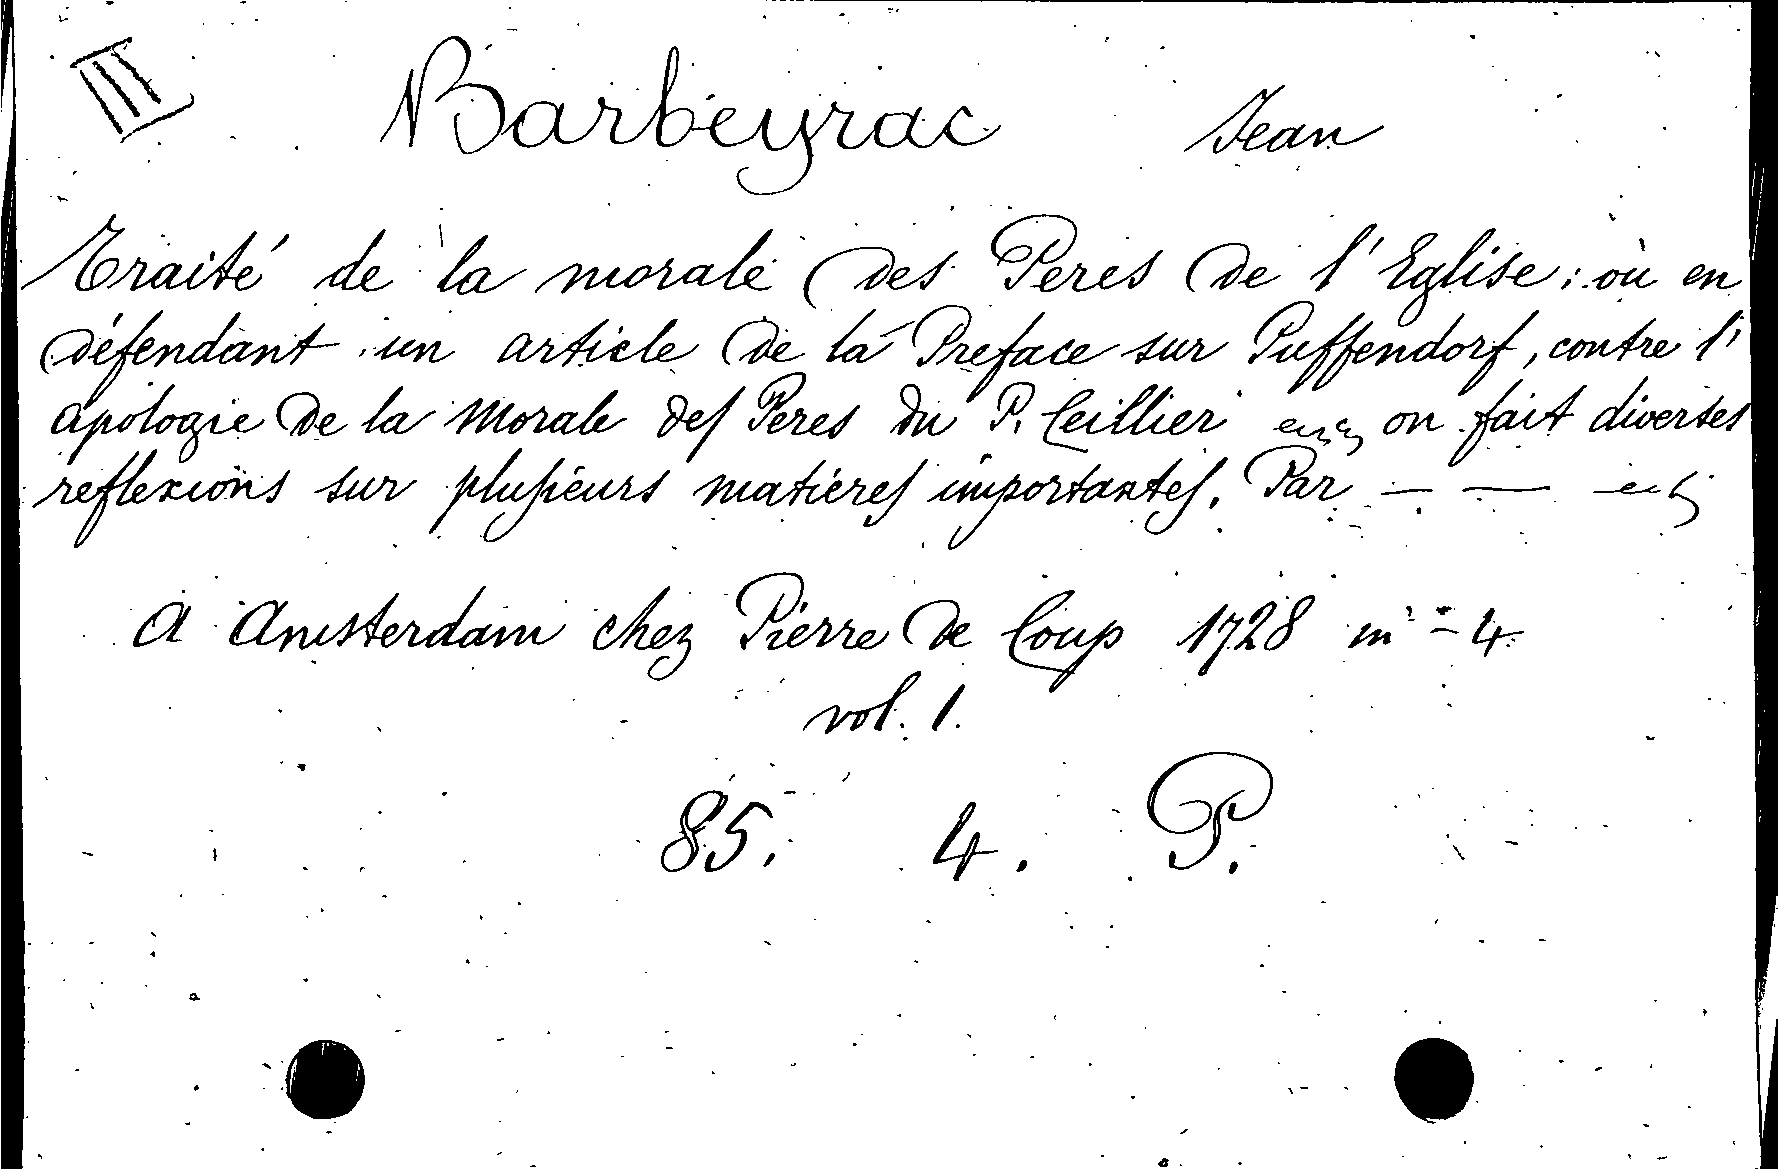 III Barbeyrac Jean
Traité de la morale des Peres de l'Eglise: où en
défendant un article de la Preface sur Puffendorf, contre l'
apologie de la Morale des Peres du P. Ceillier on fait diverses
reflexions sur plusieurs matières importantes. Par — —
A Amsterdam chez Pierre de Coup 1728 in-4.
vol. 1.
85. 4. P.